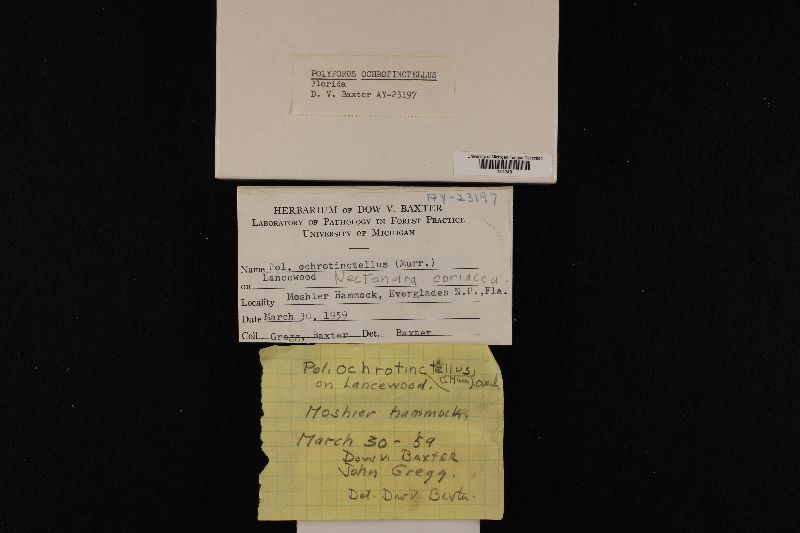 POLYPORUS OCHROTINCTELLUS
Florida
D. V. Baxter AY-23197
University of Michigan Fungus Collection
AY-23197
HERBARIUM OF DOW V. BAXTER
LABORATORY OF PATHOLOGY IN FOREST PRACTICE
UNIVERSITY OF MICHIGAN
Name Pol. ochrotinctellus (Murr.)
on Lancewood Nectandra coriacea.
Locality Moshier Hammock, Everglades N.P., Fla.
Date March 30, 1959
Coll. Gregg, Baxter Det. Baxter
Pol. ochrotinctellus,
on Lancewood. (Murr.) Overh
Moshier hammock.
March 30 - '59
Dow V. BAXTER
John Gregg.
Det. Dow V. Baxter.